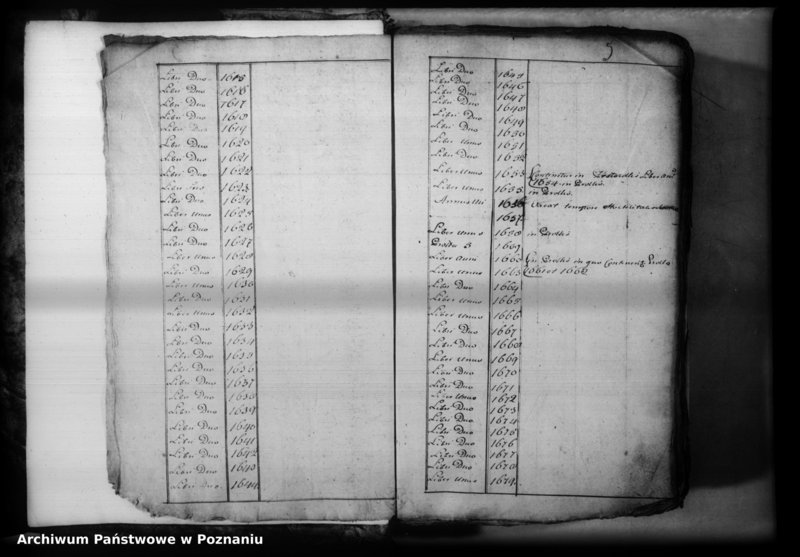 Libri Duo 1615
Libri Duo 1616
Libri Duo 1617
Libri Duo 1618
Libri Duo 1619
Libri Duo 1620
Libri Duo 1621
Libri Duo 1622
Libri 1623
Libri Duo 1624
Liber unus 1625
Libri Duo 1626
Libri Duo 1627
Liber unus 1628
Libri Duo 1629
Liber unus 1630
Libri Duo 1631
Liber unus 1632
Libri Duo 1633
Libri Duo 1634
Libri Duo 1635
Libri Duo 1636
Libri Duo 1637
Libri Duo 1638
Libri Duo 1639
Libri Duo 1640
Libri Duo 1641
Libri Duo 1642
Libri Duo 1643
Libri Duo 1644
5
Libri Duo 1645
Libri Duo 1646
Libri Duo 1647
Libri Duo 1648
Libri Duo 1649
Libri Duo 1650
Liber unus 1651
Libri Duo 1652
Liber unus 1653 Continetur in Liber
1654 in Prothis
Liber unus 1655 in Prothis
1656 Vacat tempore
1657
Liber unus 1658 in Prothis
3 1659
Liber 1660 in quo
Liber unus 1663 1661 et 1662
Libri Duo 1664
Liber unus 1665
Liber unus 1666
Libri Duo 1667
Libri Duo 1668
Liber unus 1669
Libri Duo 1670
Libri Duo 1671
Liber unus 1672
Libri Duo 1673
Libri Duo 1674
Libri Duo 1675
Libri Duo 1676
Libri Duo 1677
Libri Duo 1678
Liber unus 1674
Archiwum Państwowe w Poznaniu